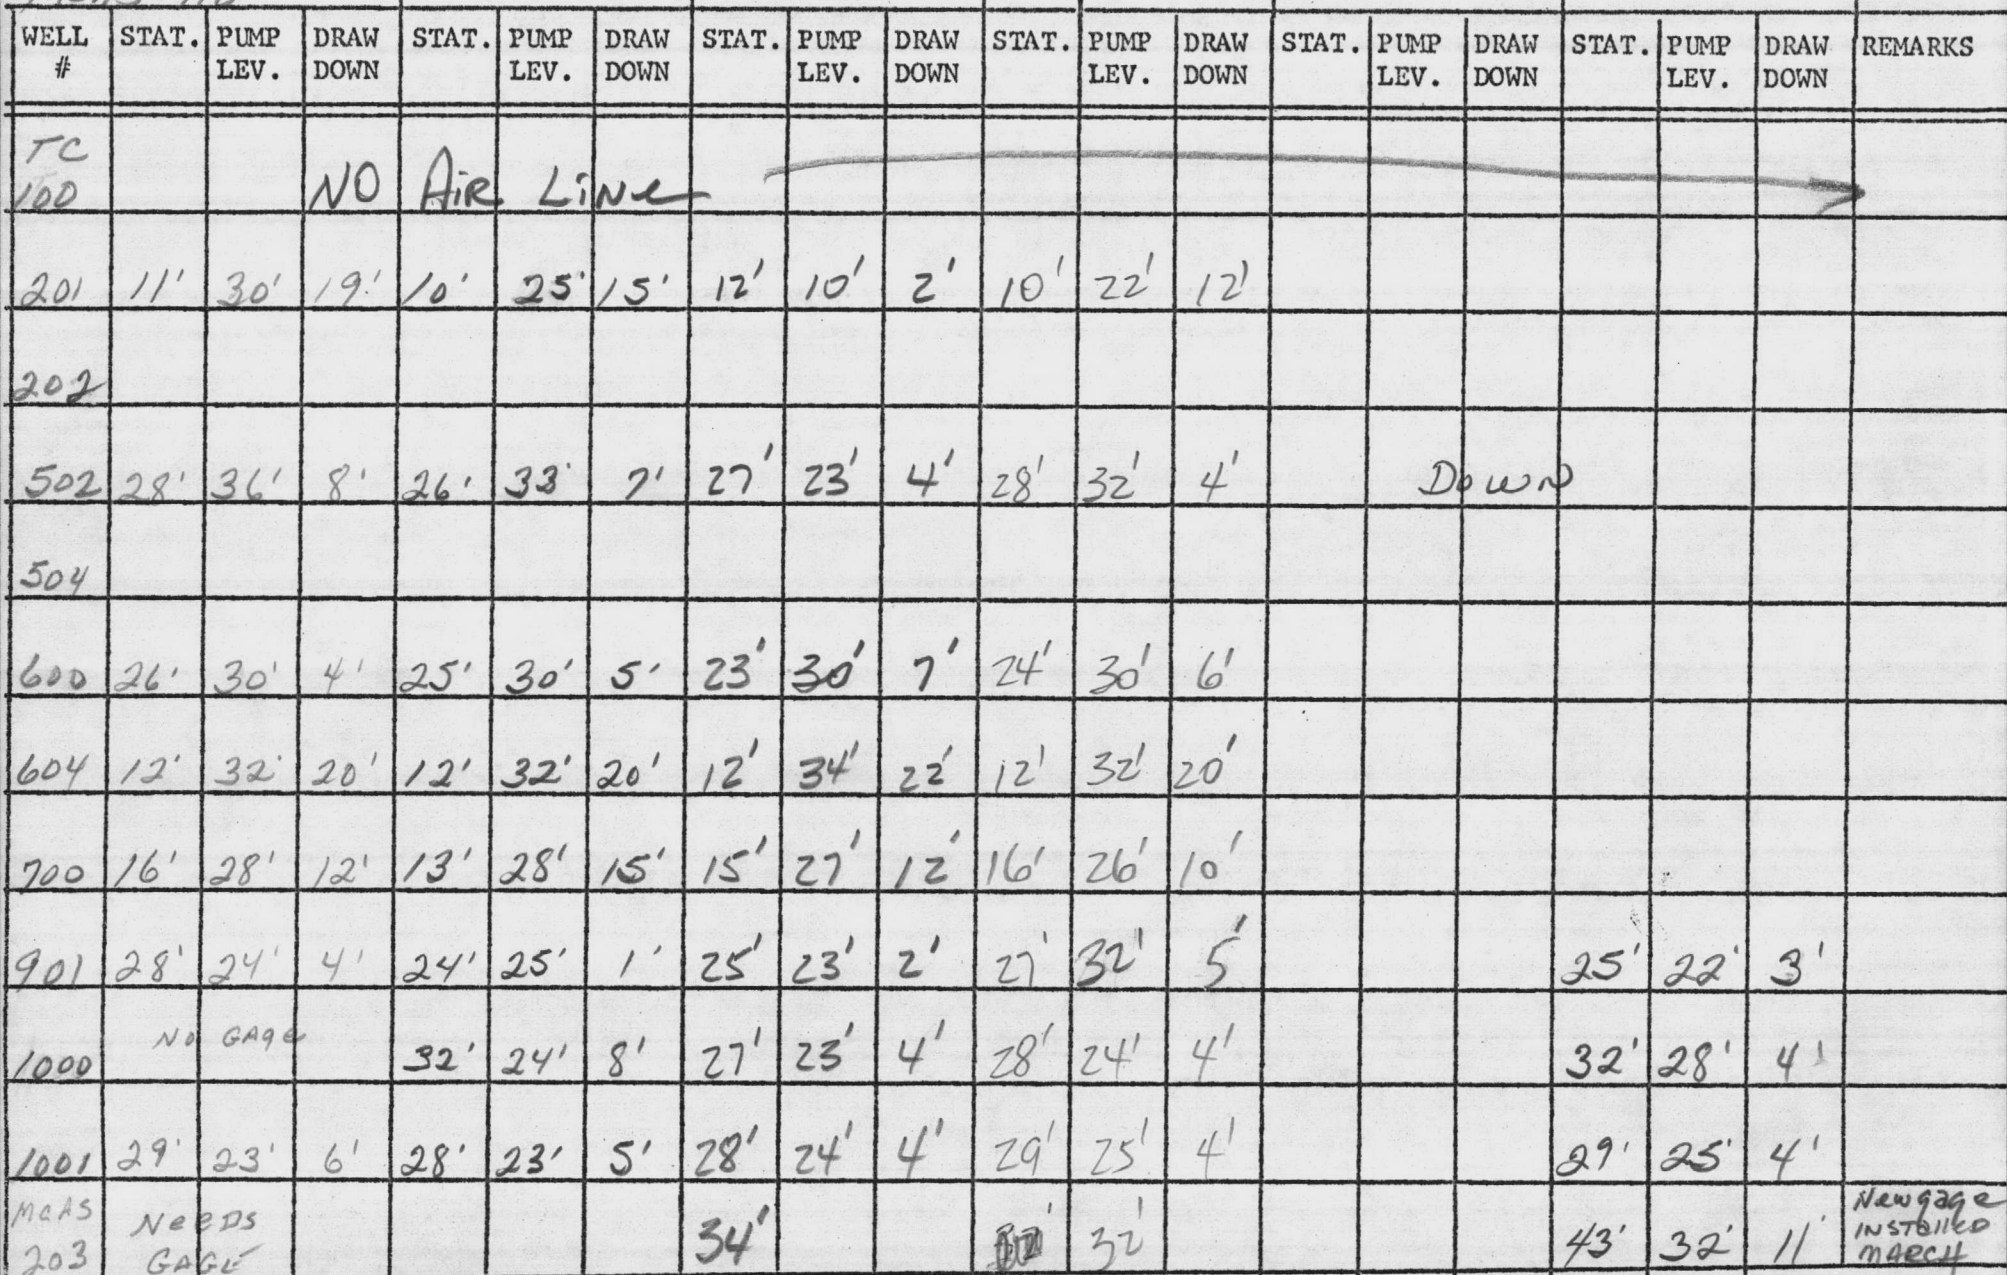 WELL # STAT. PUMP LEV. DRAW DOWN STAT. PUMP LEV. DRAW DOWN STAT. PUMP LEV. DRAW DOWN STAT. PUMP LEV. DRAW DOWN STAT. PUMP LEV. DRAW DOWN STAT. PUMP LEV. DRAW DOWN REMARKS
TC 100 NO AiR LiNe
201 11' 30' 19' 10' 25' 15' 12' 10' 2' 10' 22' 12'
202
502 28' 36' 8' 26' 33' 7' 27' 23' 4' 28' 32' 4' DowN
504
600 26' 30' 4' 25' 30' 5' 23' 30' 7' 24' 30' 6'
604 12' 32' 20' 12' 32' 20' 12' 34' 22' 12' 32' 20'
700 16' 28' 12' 13' 28' 15' 15' 27' 12' 16' 26' 10'
901 28' 24' 4' 24' 25' 1' 25' 23' 2' 27' 32' 5' 25' 22' 3'
1000 NO GAGe 32' 24' 8' 27' 23' 4' 28' 24' 4' 32' 28' 4'
1001 29' 23' 6' 28' 23' 5' 28' 24' 4' 29' 25' 4' 29' 25' 4'
McAS 203 NeeDS GAGE 34' 32' 43' 32' 11' New gage INSTALLED MARCH